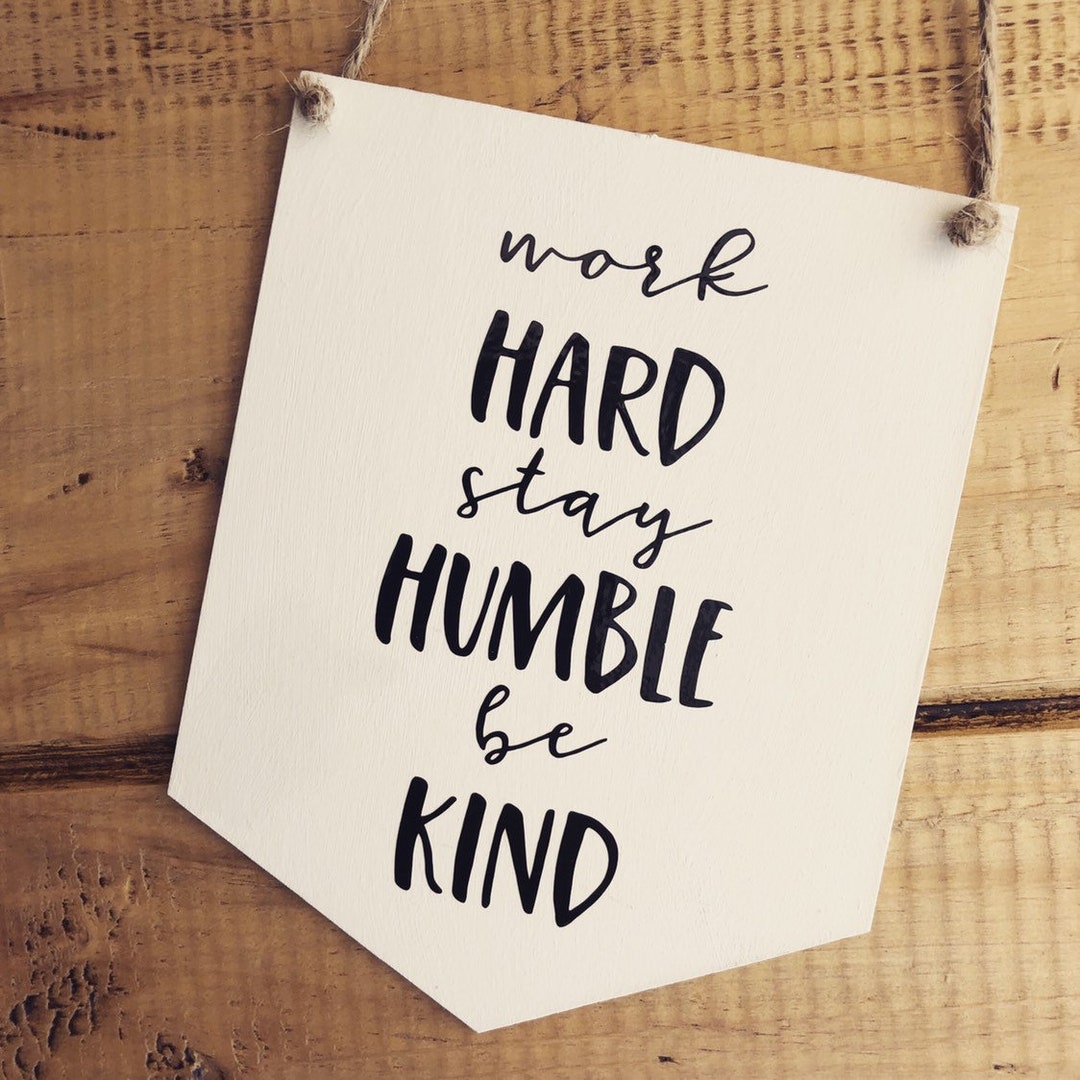 work
HARD
stay
HUMBLE
be
KIND